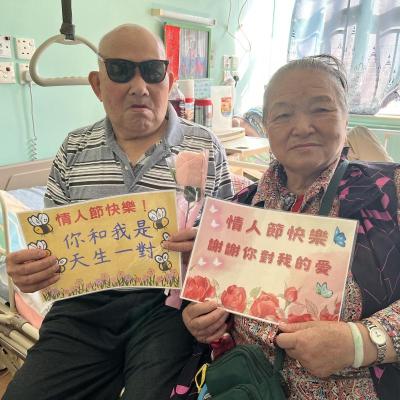 情人節快樂！
你和我是
天生一對
情人節快樂
謝謝你對我的愛